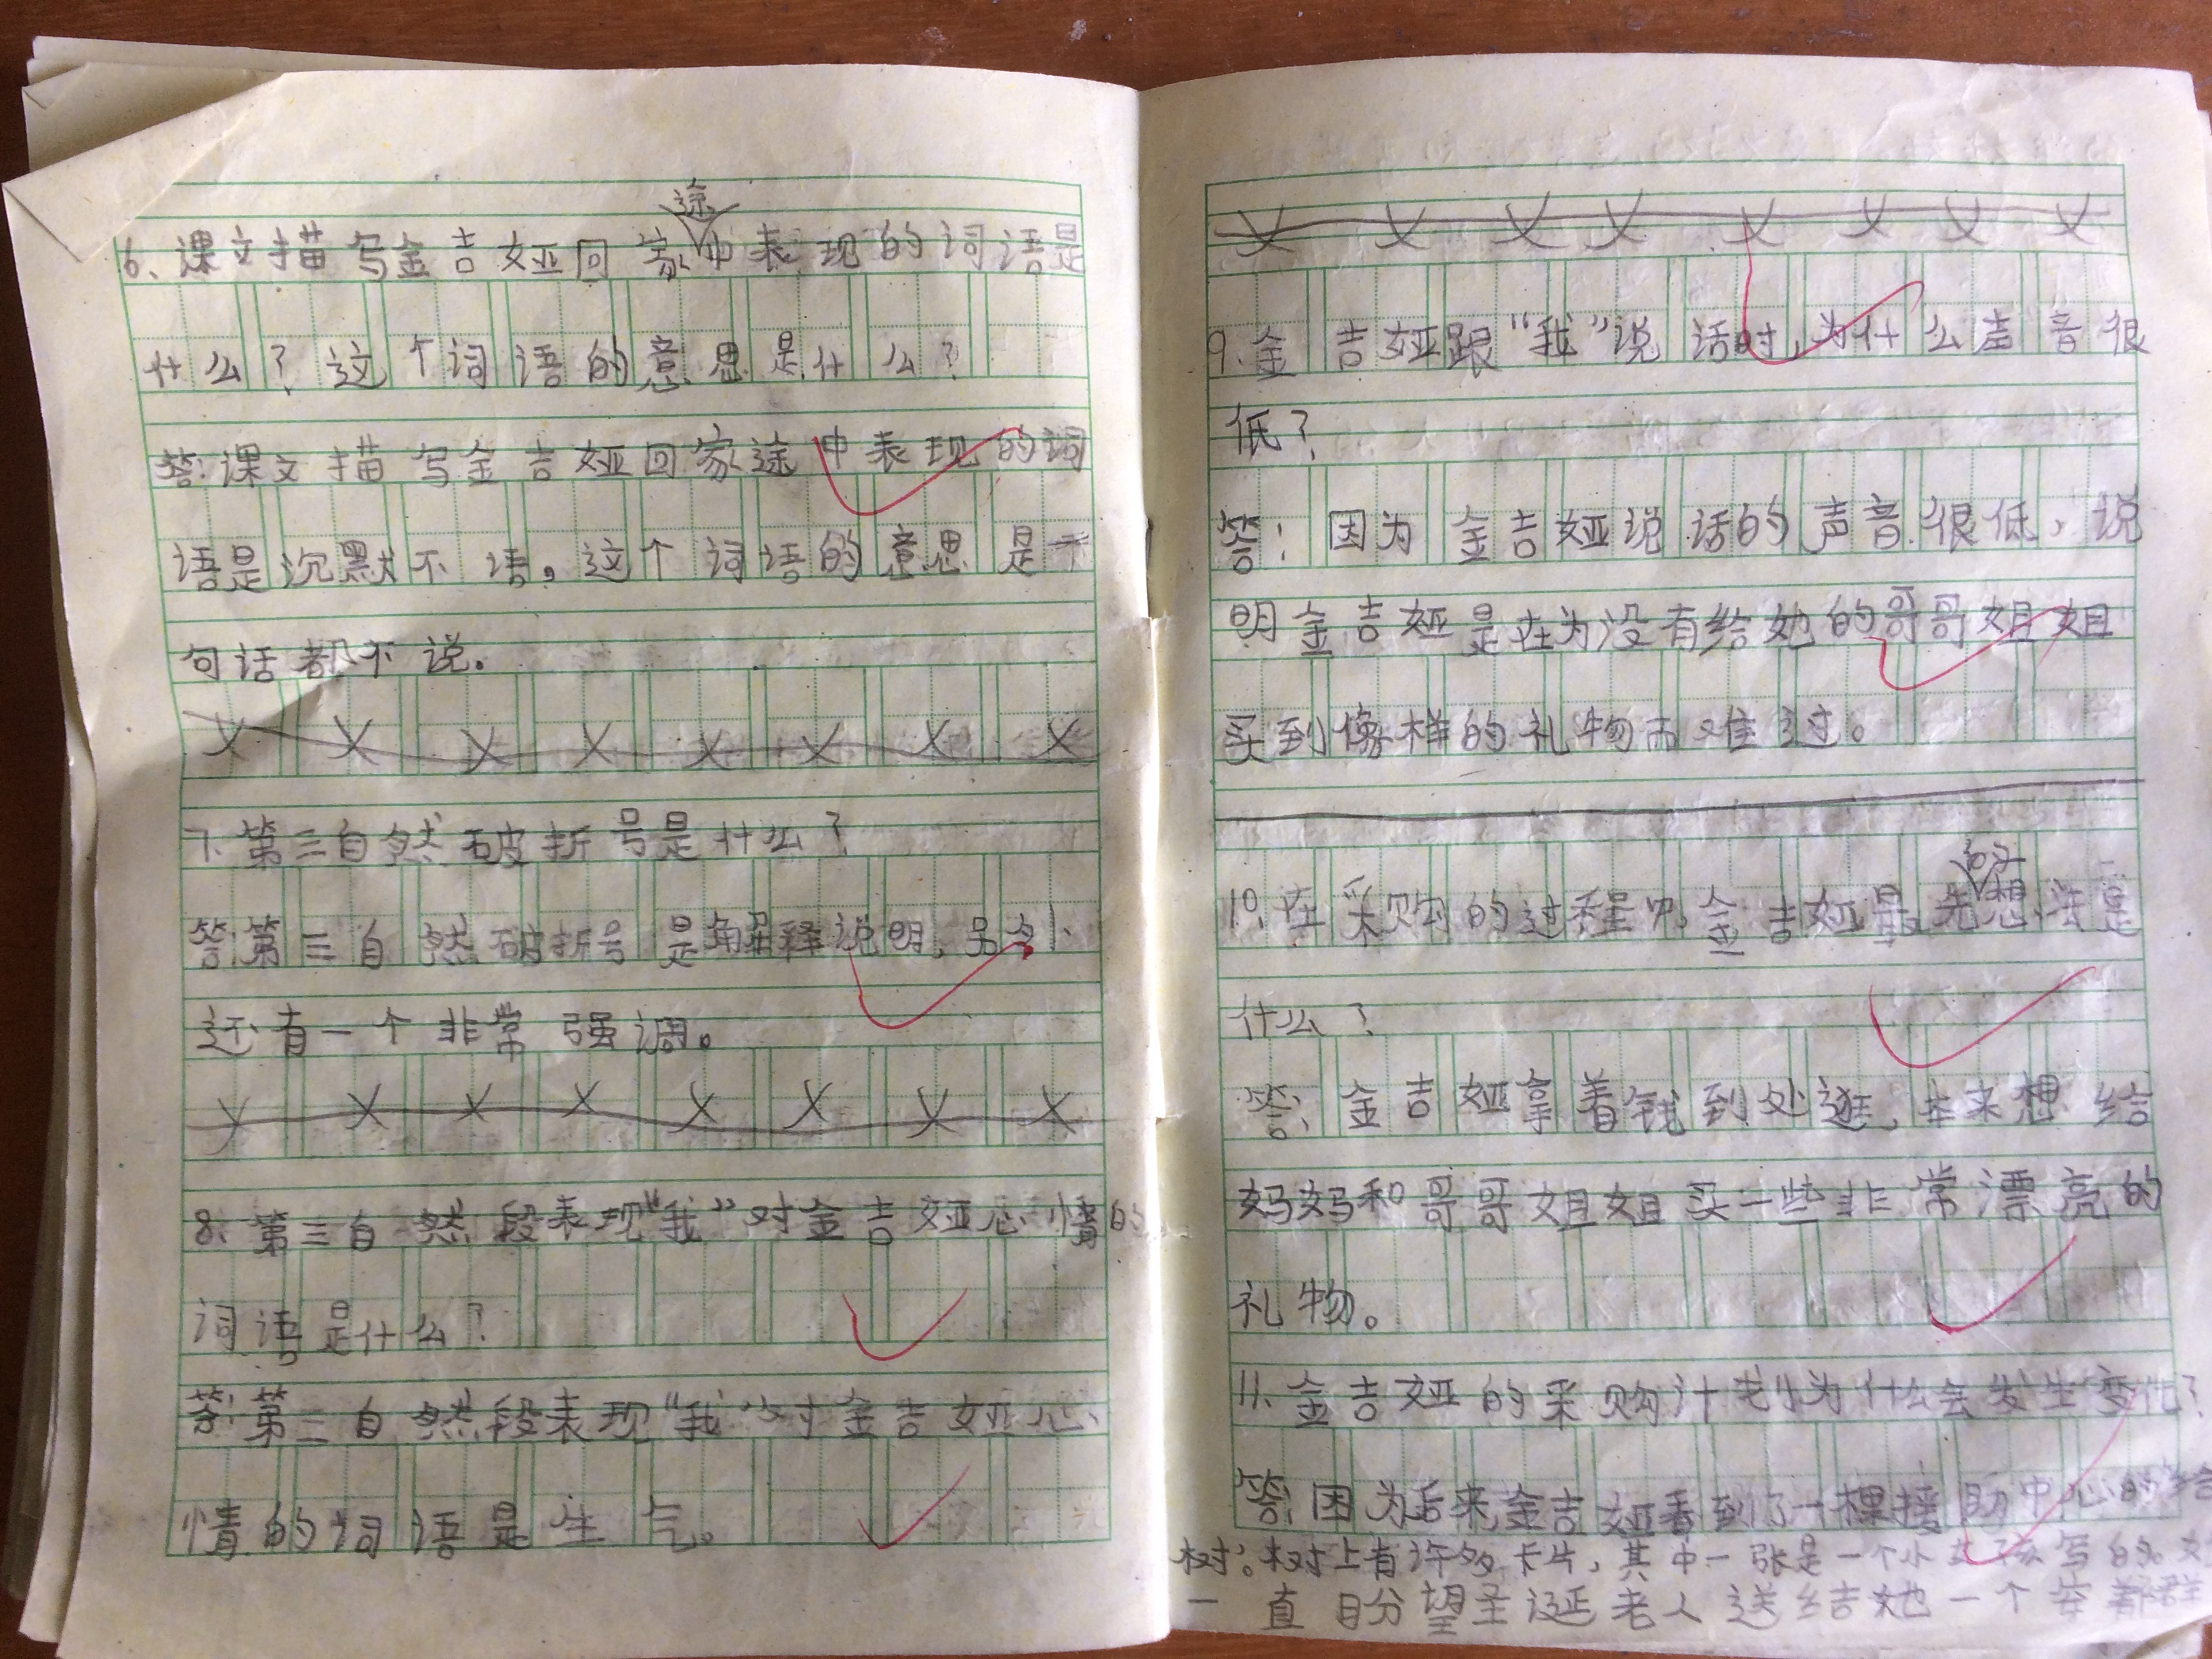 6、课文描写金吉娅回家途中表现的词语是
什么？这个词语的意思是什么？
答：课文描写金吉娅回家途中表现的词
语是沉默不语。这个词语的意思是一
句话都不说。
7、第三自然破折号是什么？
答：第三自然破折号是解释说明，另外
还有一个非常强调。
8、第三自然段表现“我”对金吉娅心情的
词语是什么？
答：第三自然段表现“我”对金吉娅心
情的词语是生气。
9、金吉娅跟“我”说话时，为什么声音很
低？
答：因为金吉娅说话的声音很低，说
明金吉娅是在为没有给她的哥哥姐姐
买到像样的礼物而难过。
10、在采购的过程中，金吉娅最先的想法是
什么？
答：金吉娅拿着钱到处逛，本来想给
妈妈和哥哥姐姐买一些非常漂亮的
礼物。
11、金吉娅的采购计划为什么会发生变化？
答：因为后来金吉娅看到了一棵援助中心的给
树。树上有许多卡片，其中一张是一个小女孩写的。
一直盼望圣诞老人送给她一个